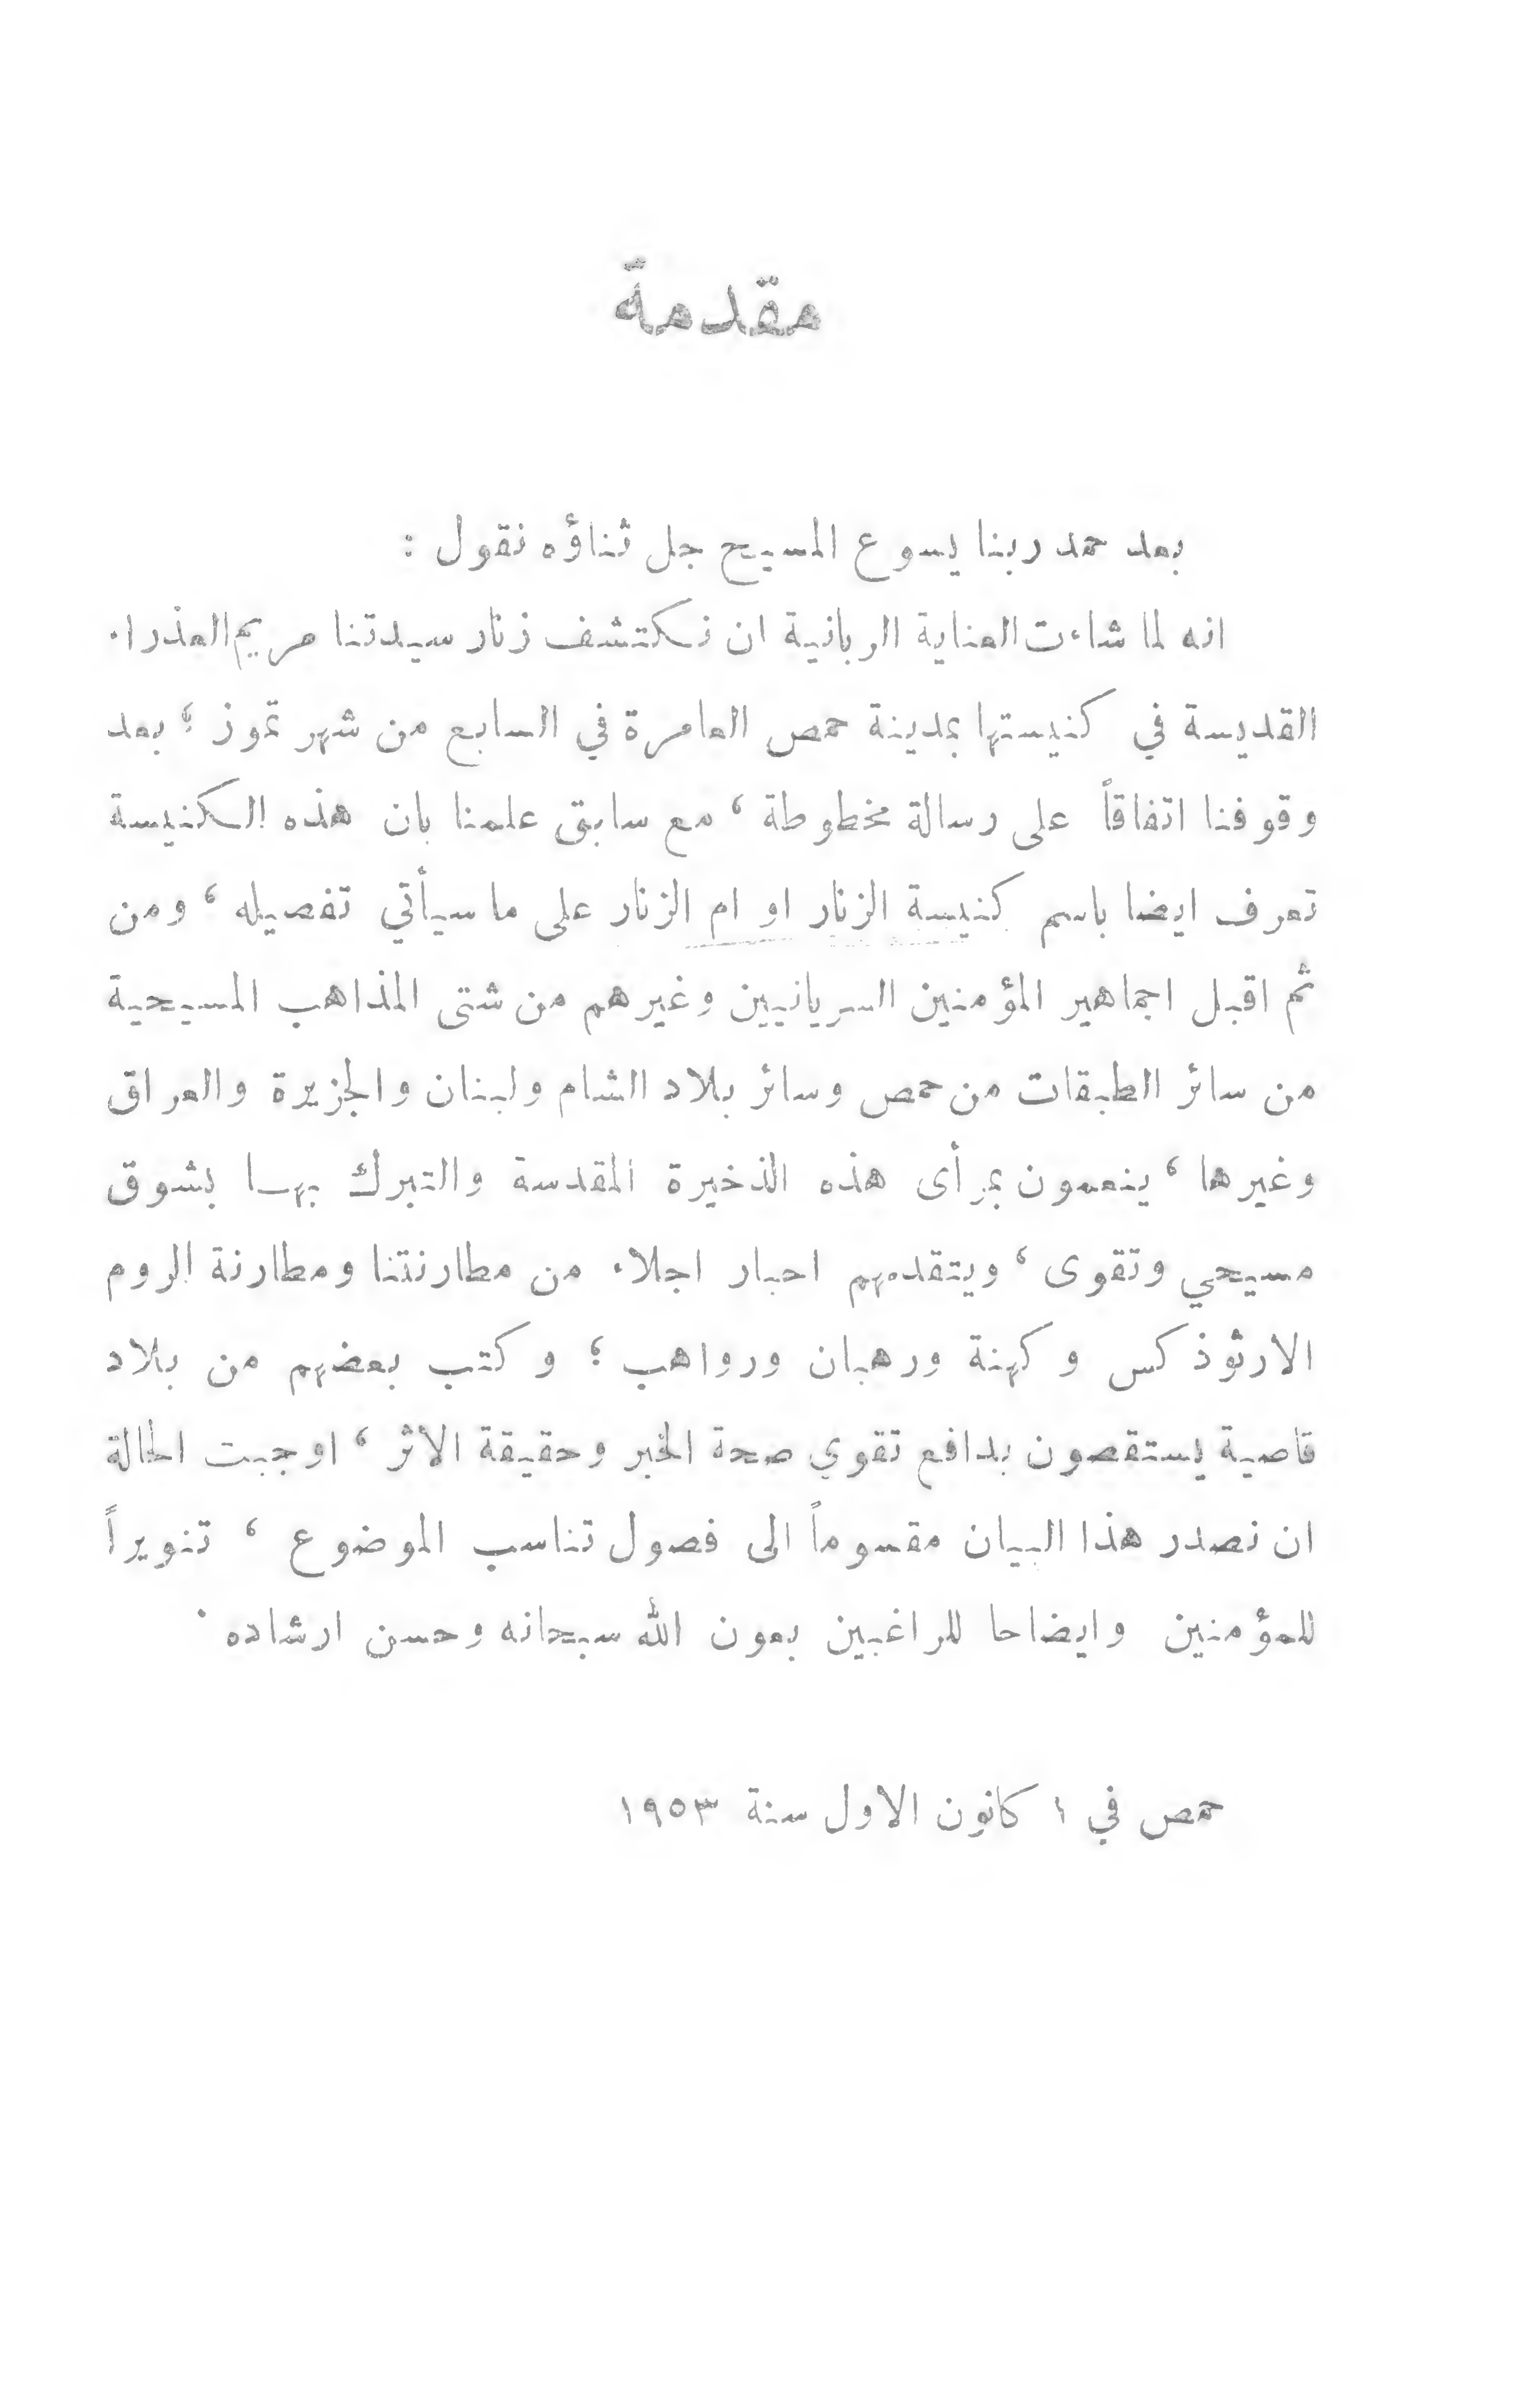 مقدمة
بعد حمد ربنا يسوع المسيح جل ثناؤه نقول :
انه لما شاءت العناية الربانية ان نكتشف زنار سيدتنا مريم العذراء
القديسة في كنيستها بمدينة حمص العامرة في السابع من شهر تموز ؛ بعد
وقوفنا اتفاقاً على رسالة مخطوطة ، مع سابق علمنا بان هذه الكنيسة
تعرف ايضا باسم كنيسة الزنار او ام الزنار على ما سيأتي تفصيله ، ومن
ثم اقبل اجماهير المؤمنين السريانيين وغيرهم من شتى المذاهب المسيحية
من سائر الطبقات من حمص وسائر بلاد الشام ولبنان والجزيرة والعراق
وغيرها ، ينعمون بمرأى هذه الذخيرة المقدسة والتبرك بهـا بشوق
مسيحي وتقوى ، ويتقدمهم احبار اجلاء من مطارنتنا ومطارنة الروم
الارثوذكس وكهنة ورهبان ورواهب ؛ وكتب بعضهم من بلاد
قاصية يستقصون بدافع تقوي صحة الخبر وحقيقة الاثر ، اوجبت الحالة
ان نصدر هذا البيان مقسوماً الى فصول تناسب الموضوع ، تنويراً
للمؤمنين وايضاحا للراغبين بعون الله سبحانه وحسن ارشاده .
حمص في ١ كانون الاول سنة ١٩٥٣